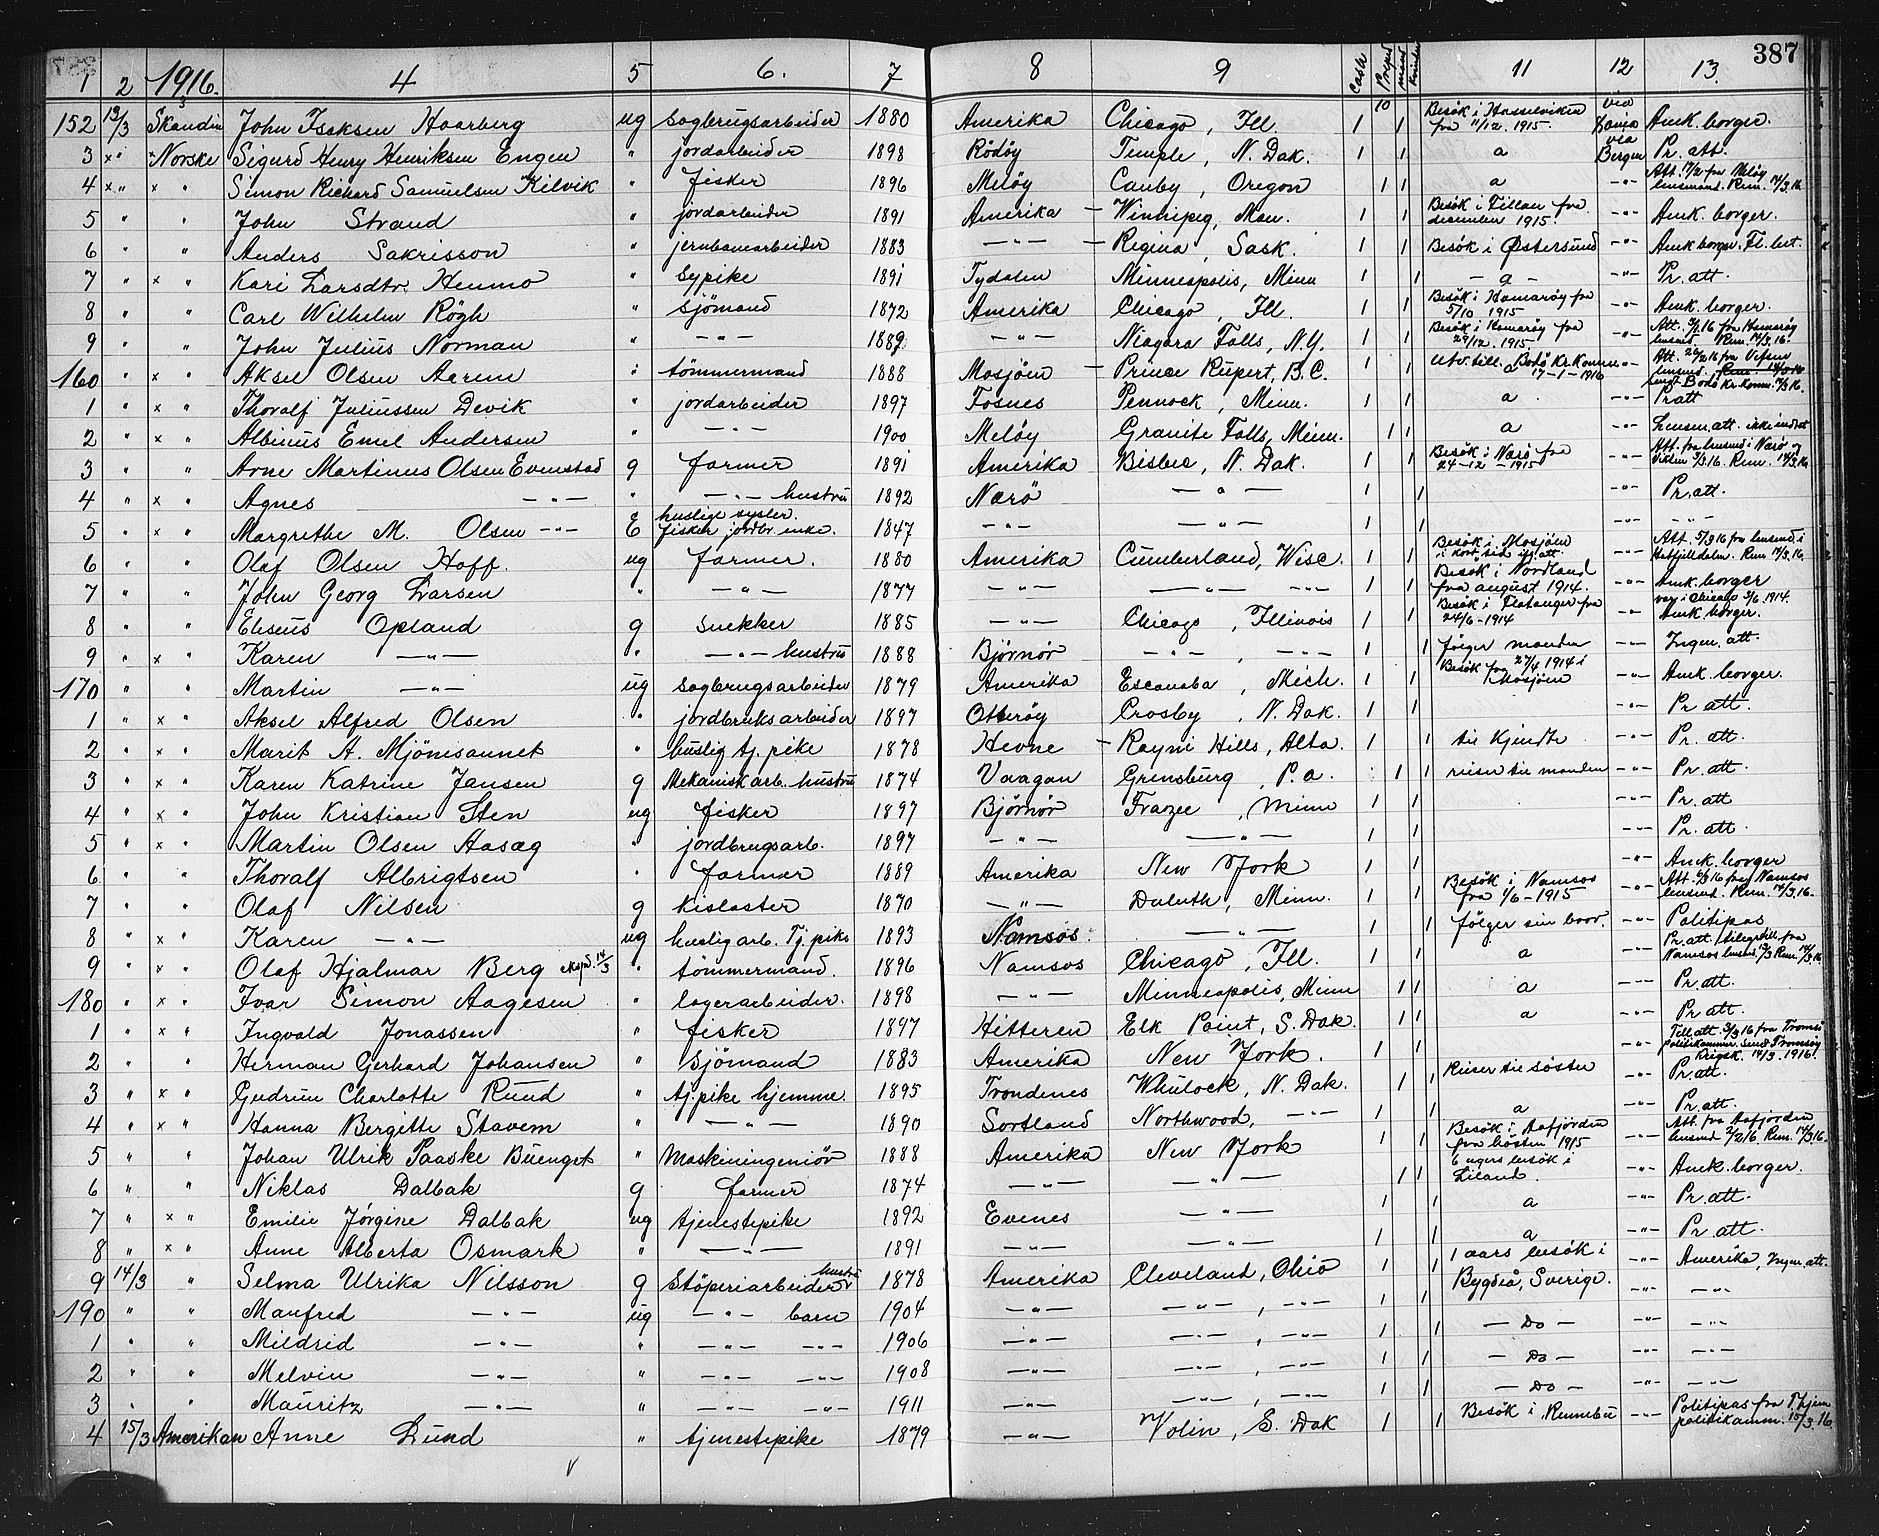 387
1 2 1916. 4 5 6. 7 8 9 Cash Prepd mand kvinde 11 12 13.
152 13/3 Skandin John Isaksen Haarberg ug sagbrugsarbeider 1880 Amerika Chicago, Ill 1 1 Besök i Hasselviken fra 11/12. 1915. via Amk. borger.
3 x " Norske Sigurd Henry Henriksen Engen " jordarbeider 1898 Rödöy Temple, N. Dak. 1 1 a via Bergen Pr. att.
4 x " x " Simon Richard Samuelsen Kilvik " fisker 1896 Melöy Canby, Oregon 1 1 a -"- Att. 17/2 fra Melöy lensmand. Rem. 14/3.16
5 " " John Strand " jordarbeider 1891 Amerika - Winnipeg, Man. 1 1 Besök i Fillan fra december 1915. -"- Amk. borger.
6 " " Anders Sakrisson " jernbanearbeider 1883 -"- - Regina, Sask. 1 1 Besök i Östersund -"- Amk borger. Fl. bet.
7 " x " Kari Larsdtr. Henmo " sypike 1891 Tydalen Minneapolis, Minn 1 1 - a - -"- Pr. att.
8 " " Carl Wilhelm Rögh " sjömand 1872 Amerika Chicago, Ill. 1 1 Besök i Hamaröy fra 5/10 1915 -"- Amk. borger.
9 " " John Julius Norman " -"- 1889 -"- Niagara Falls, N.Y. 1 1 Besök i Hamaröy fra 29/12. 1915. -"- Att. fra Hamaröy lensmd. Rem. 14/3.16.
160 " x " Aksel Olsen Aarem " tömmermand 1888 Mosjöen - Prince Rupert, B.C. 1 1 Utv. till. Bodö Kr. Komm. a 17-1-1916 -"- Att. 26/2 16 fra Vefsen lensmd. sendt Bodö Kr. Komm. 14/3 16.
1 " x " Thoralf Juliussen Devik " jordarbeider 1897 Fosnes Pennock, Minn. 1 1 a -"- Pr att
2 " x " Albinus Emel Andersen " -"- 1900 Melöy Granite Falls, Minn. 1 1 a -"- Lensm. att. ikke indtat
3 " " Arne Martinus Olsen Evenstad g farmer 1891 Amerika Bisbee, N. Dak. 1 1 Besök i Narö fra 24-12-1915 -"- Att. fra lensmd i Narö og Vikten 3/3 16. Rem. 14/3.16
4 " x " Agnes -"- " -"- hustru 1892 Nærö -"- 1 1 -"- Pr. att.
5 " x " Margrethe M. Olsen -"- E huslige sysler. fisker jordbr. enke. 1847 -"- -"- 1 1 -"- -"-
6 " " Olaf Olsen Hoff. ug farmer. 1880 Amerika Cumberland, Wisc. 1 1 Besök i Mosjöen i kort tid iflg. att. -"- Att. 5/3 16 fra lensmd i Hatfjelldalen. Rem. 14/3.16.
7 " " John Georg Larsen " -"- 1877 -"- -"- -"- 1 1 Besök i Nordland fra august 1914. -"- Amk. borger
8 " " Eliseus Opland g snekker 1885 -"- Chicago, Illinois 1 1 Besök i Flatanger fra 24/6-1914 -"- var i Chicago 3/6. 1914. Amk. borger.
9 " x " Karen -"- " -"- hustru 1888 Björnör -"-, -"- 1 följer manden -"- Ingen att.
170 " " Martin -"- ug sagbrugsarbeider 1879 Amerika Escanaba, Mich. 1 1 Besök fra 27/4 1914 i Mosjöen -"- Amk. borger.
1 " x " Aksel Alfred Olsen " jordbruksarbeider 1897 Otteröy Crosby, N. Dak. 1 1 -"- Pr att.
2 " x " Marit A. Mjönesaunet " huslig tj. pike 1878 Hevne - Rayni Hills, Alta. 1 1 til kjendte -"- Pr. att.
3 " x " Karen Katrine Jansen g Mekanisk arb. hustru 1874 Vaagan Grensburg, P.a. 1 1 reiser til manden -"- Pr. att
4 " x " John Kristian Sten ug fisker 1897 Björnör Frazee, Minn 1 1 -"- Pr. att
5 " x " Martin Olsen Aasæg " jordbrugsarb. 1897 -"- -"- 1 1 -"- Pr. att
6 " " Thoralf Albrigtsen " farmer 1889 Amerika New York 1 1 -"- Amk. borger
7 " " Olaf Nilsen g kislaster 1870 -"- Duluth, Minn. 1 1 Besök i Namsos fra 1/6-1915 -"- Att. fra Namsos lensmd. Rem. 14/3.16.
8 " x " Karen -"- ug huslig arb. Tj. pike 1893 Namsos. -"- 1 1 följer sin bror. -"- Politipas
9 " x " Olaf Hjalmar Berg 14/3 " tömmermand. 1896 Namsos Chicago, Ill. 1 1 a -"- Pr. att / telegr. till. fra Namsos lensmd. 13/3 Rem. 14/3.16
180 " x " Ivar Simon Aagesen " lagerarbeider. 1898 -"- Minneapolis, Minn 1 1 a -"- Pr. att.
1 " x " Ingvald Jonassen " fisker 1897 Hitteren Elk Point, S. Dak. 1 1 a -"- Pr att.
2 " " Herman Gerhard Johansen " sjömand 1883 Amerika New York. 1 1 -"- Till. att. 3/3 16 fra Tromsö politikammer. Send Tromsöy Krigsk. 14/3. 1916.
3 " x " Gudrun Charlotte Rund " tj. pike hjemme. 1895 Trondenes Wheelock, N. Dak. 1 1 Reiser til söster -"- Pr. att.
4 " x " Hanna Bergitte Stavem " -"- 1890 Sortland Northwood, -"- 1 1 a -"- Pr. att.
5 " " Johan Ulrik Paaske Buenget " Maskiningeniör 1888 Amerika New York 1 1 Besök i Aafjorden fra hösten 1915 -"- Att. fra Aafjorden lensmd 2/2 16. Rem. 14/3 16.
6 " " Niklas Dalbak g farmer 1874 -"- -"- 1 1 6 ugers besök i Liland. -"- Amk. borger.
7 " x " Emilie Jörgine Dalbak ug tjenestepike 1892 Evenes -"- 1 1 a -"- Pr. att.
8 " x " Anne Alberta Osmark " -"- 1891 -"- -"- 1 1 a -"- Pr. att.
9 14/3 " Selma Ulrika Nilsson g Stöperiarbeider hustru 1878 Amerika Cleveland, Ohio 1 1 1 aars besök i Bygdeå, Sverige. -"- Amerika, Ingen att.
190 " " Manfred -"- ug -"- barn 1904 -"- -"-, -"- 1 1 -"- -"-
1 " " Mildrid -"- " -"- -"- 1906 -"- -"-, -"- 1 1 - Do - -"- -"-
2 " " Melvin -"- " -"- -"- 1908 -"- -"-, -"- 1 1 - Do - -"- -"-
3 " " Mauritz -"- " -"- -"- 1911 -"- -"-, -"- 1 1 - Do - -"- -"-
4 15/3 Amerikan Anne Lund " tjenestepike 1879 -"- Volin, S. Dak 1 1 Besök i Rennebu -"- Politipas fra T.hjem politikamm. 15/3.16